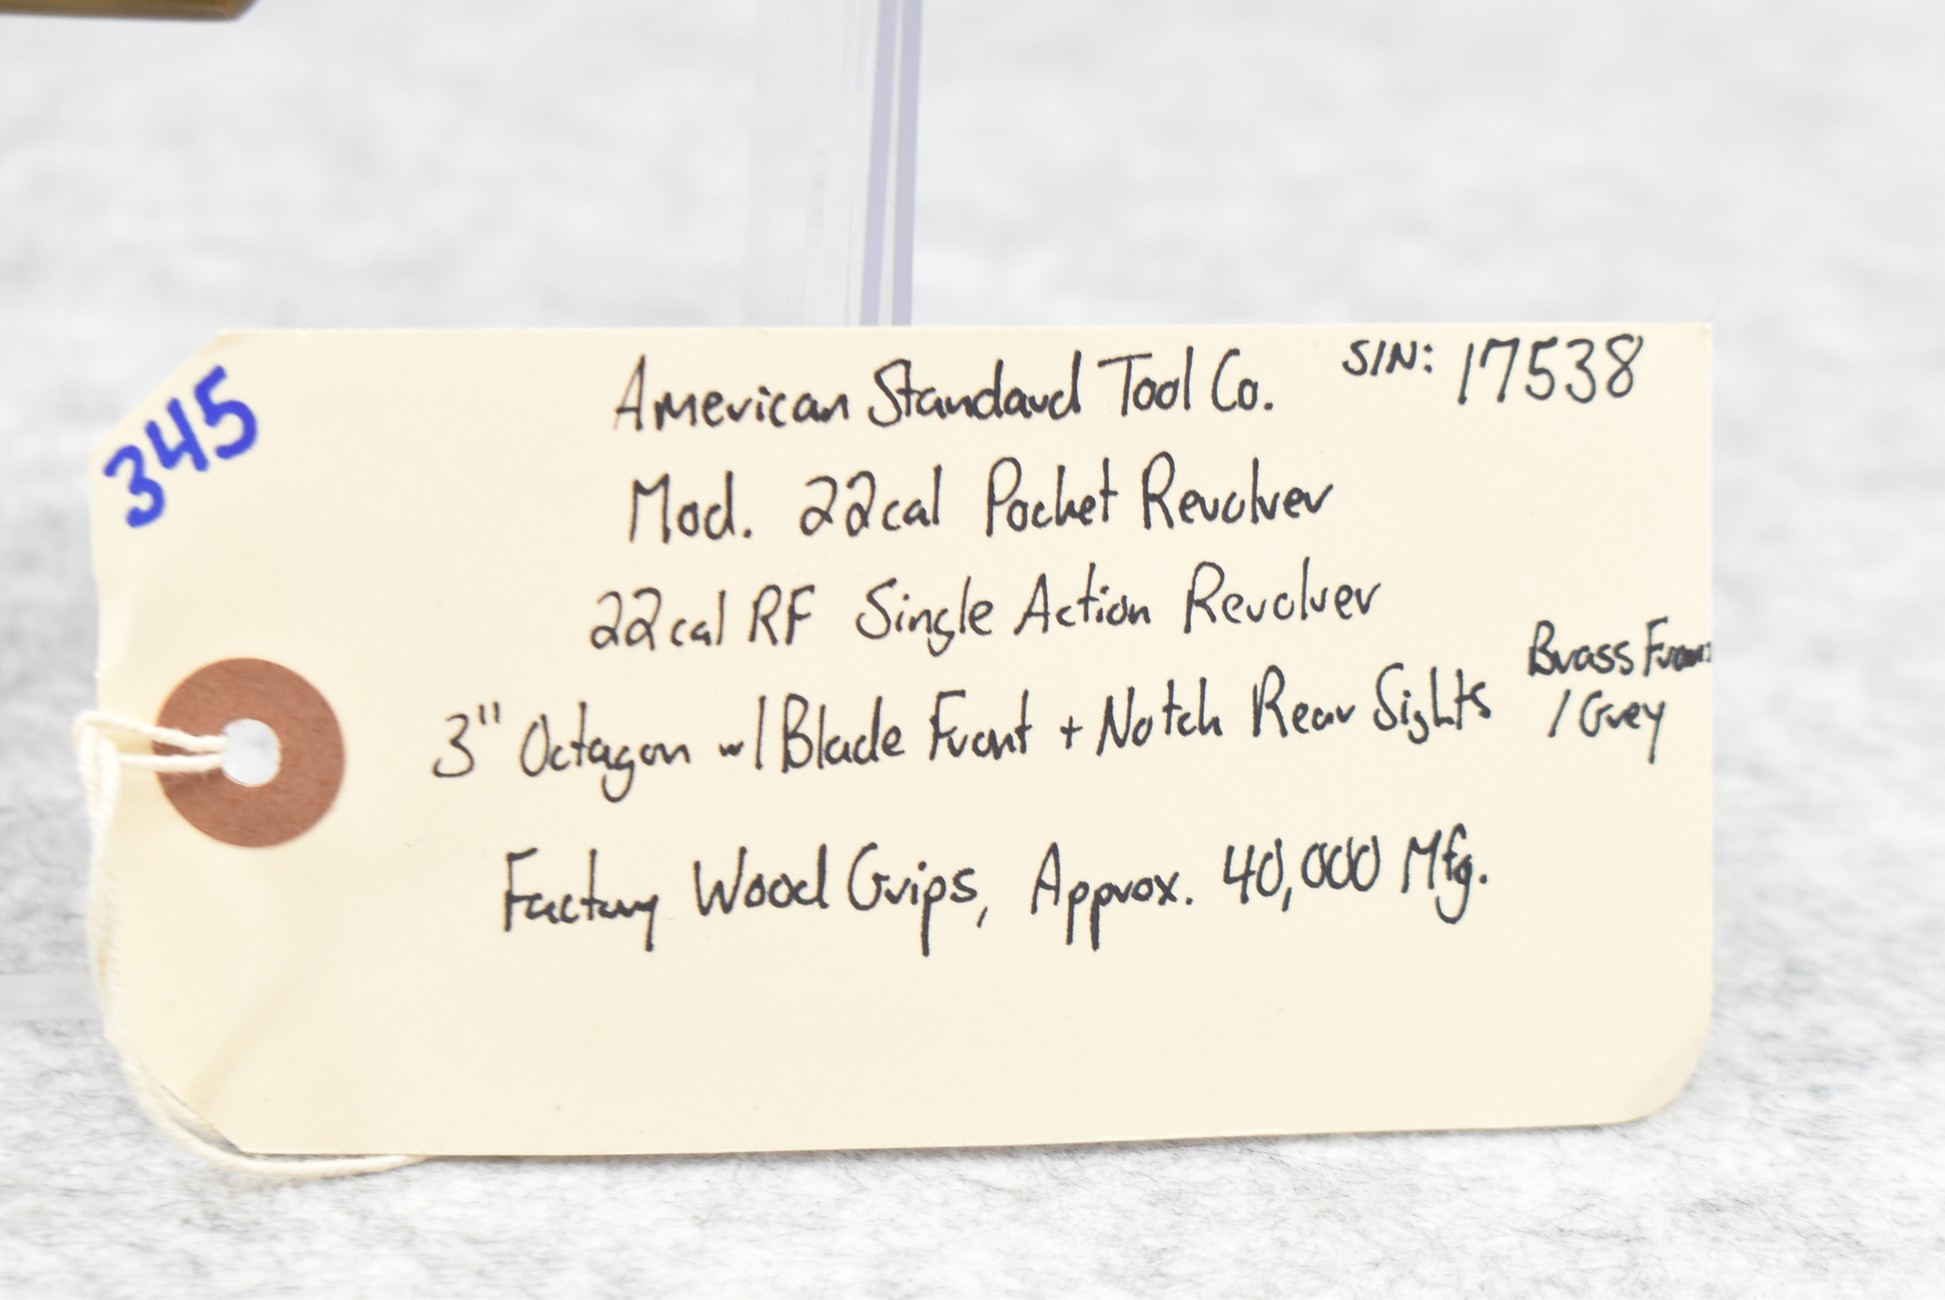 345
American Standard Tool Co. S/N: 17538
Mod. 22cal Pocket Revolver
22cal RF Single Action Revolver
3" Octagon w/Blade Front + Notch Rear Sights
Brass Frame
/Grey
Factory Wood Grips, Approx. 40,000 Mfg.